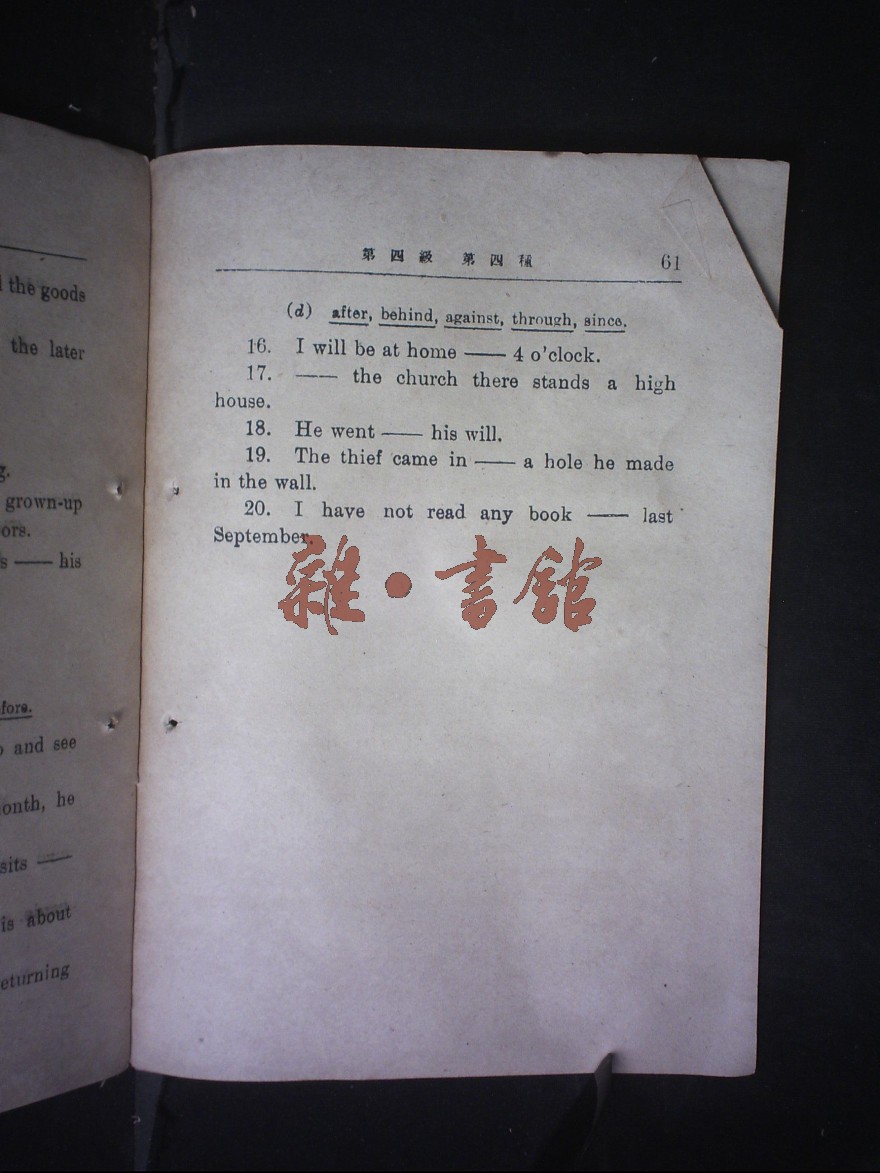 the goods
the later
g.
grown-up
ors.
s —— his
fore.
and see
onth, he
sits ——
is about
eturning
第四級 第四種 61
(d) after, behind, against, through, since.
16. I will be at home —— 4 o'clock.
17. —— the church there stands a high
house.
18. He went —— his will.
19. The thief came in —— a hole he made
in the wall.
20. I have not read any book —— last
September.
雜·書館